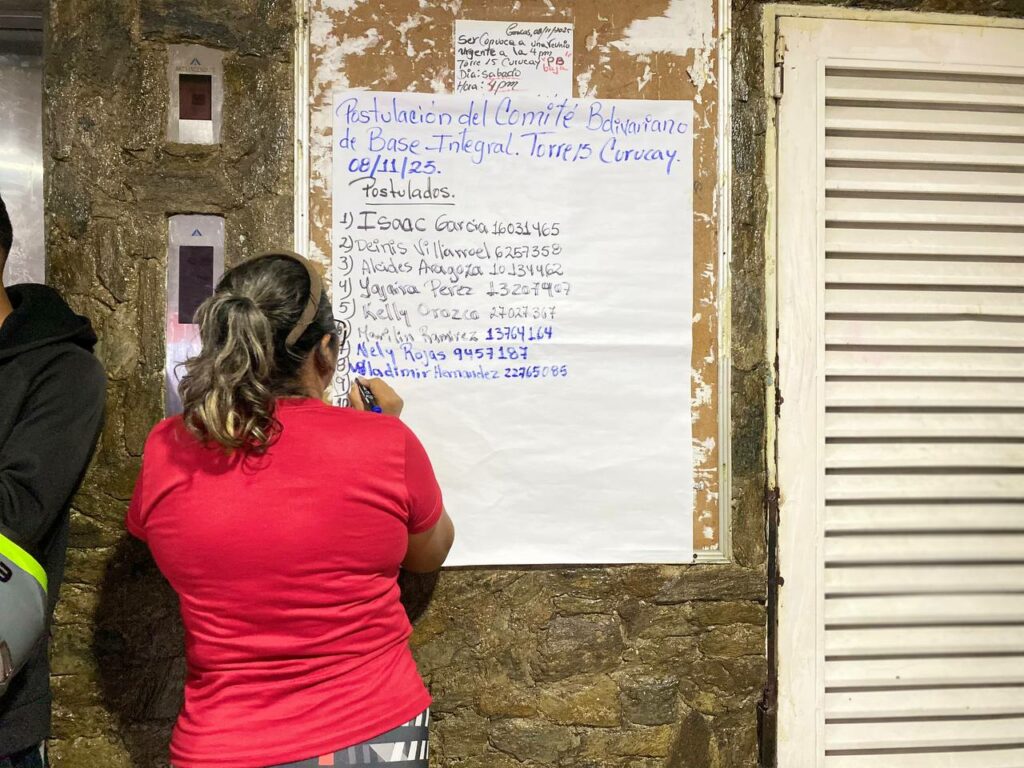 Caracas, 08/11/2025
Ser Convoca a una reunio
urgente a la 4 pm
Torre 15 Curucay "PB
baja"
Dia: sabado
Hora: 4pm
Postulación del Comité Bolivariano
de Base Integral. Torre 15 Curucay.
08/11/25.
Postulados.
1) Isaac Garcia 16031465
2) Deinis Villarroel 6257358
3) Alcides Aragoza 10134462
4) Yajaira Perez 13207907
5) Kelly Orozco 27027367
Marilin Ramirez 13764164
7) Nely Rojas 9457187
8) Wladimir Hernandez 22765085
9)
10